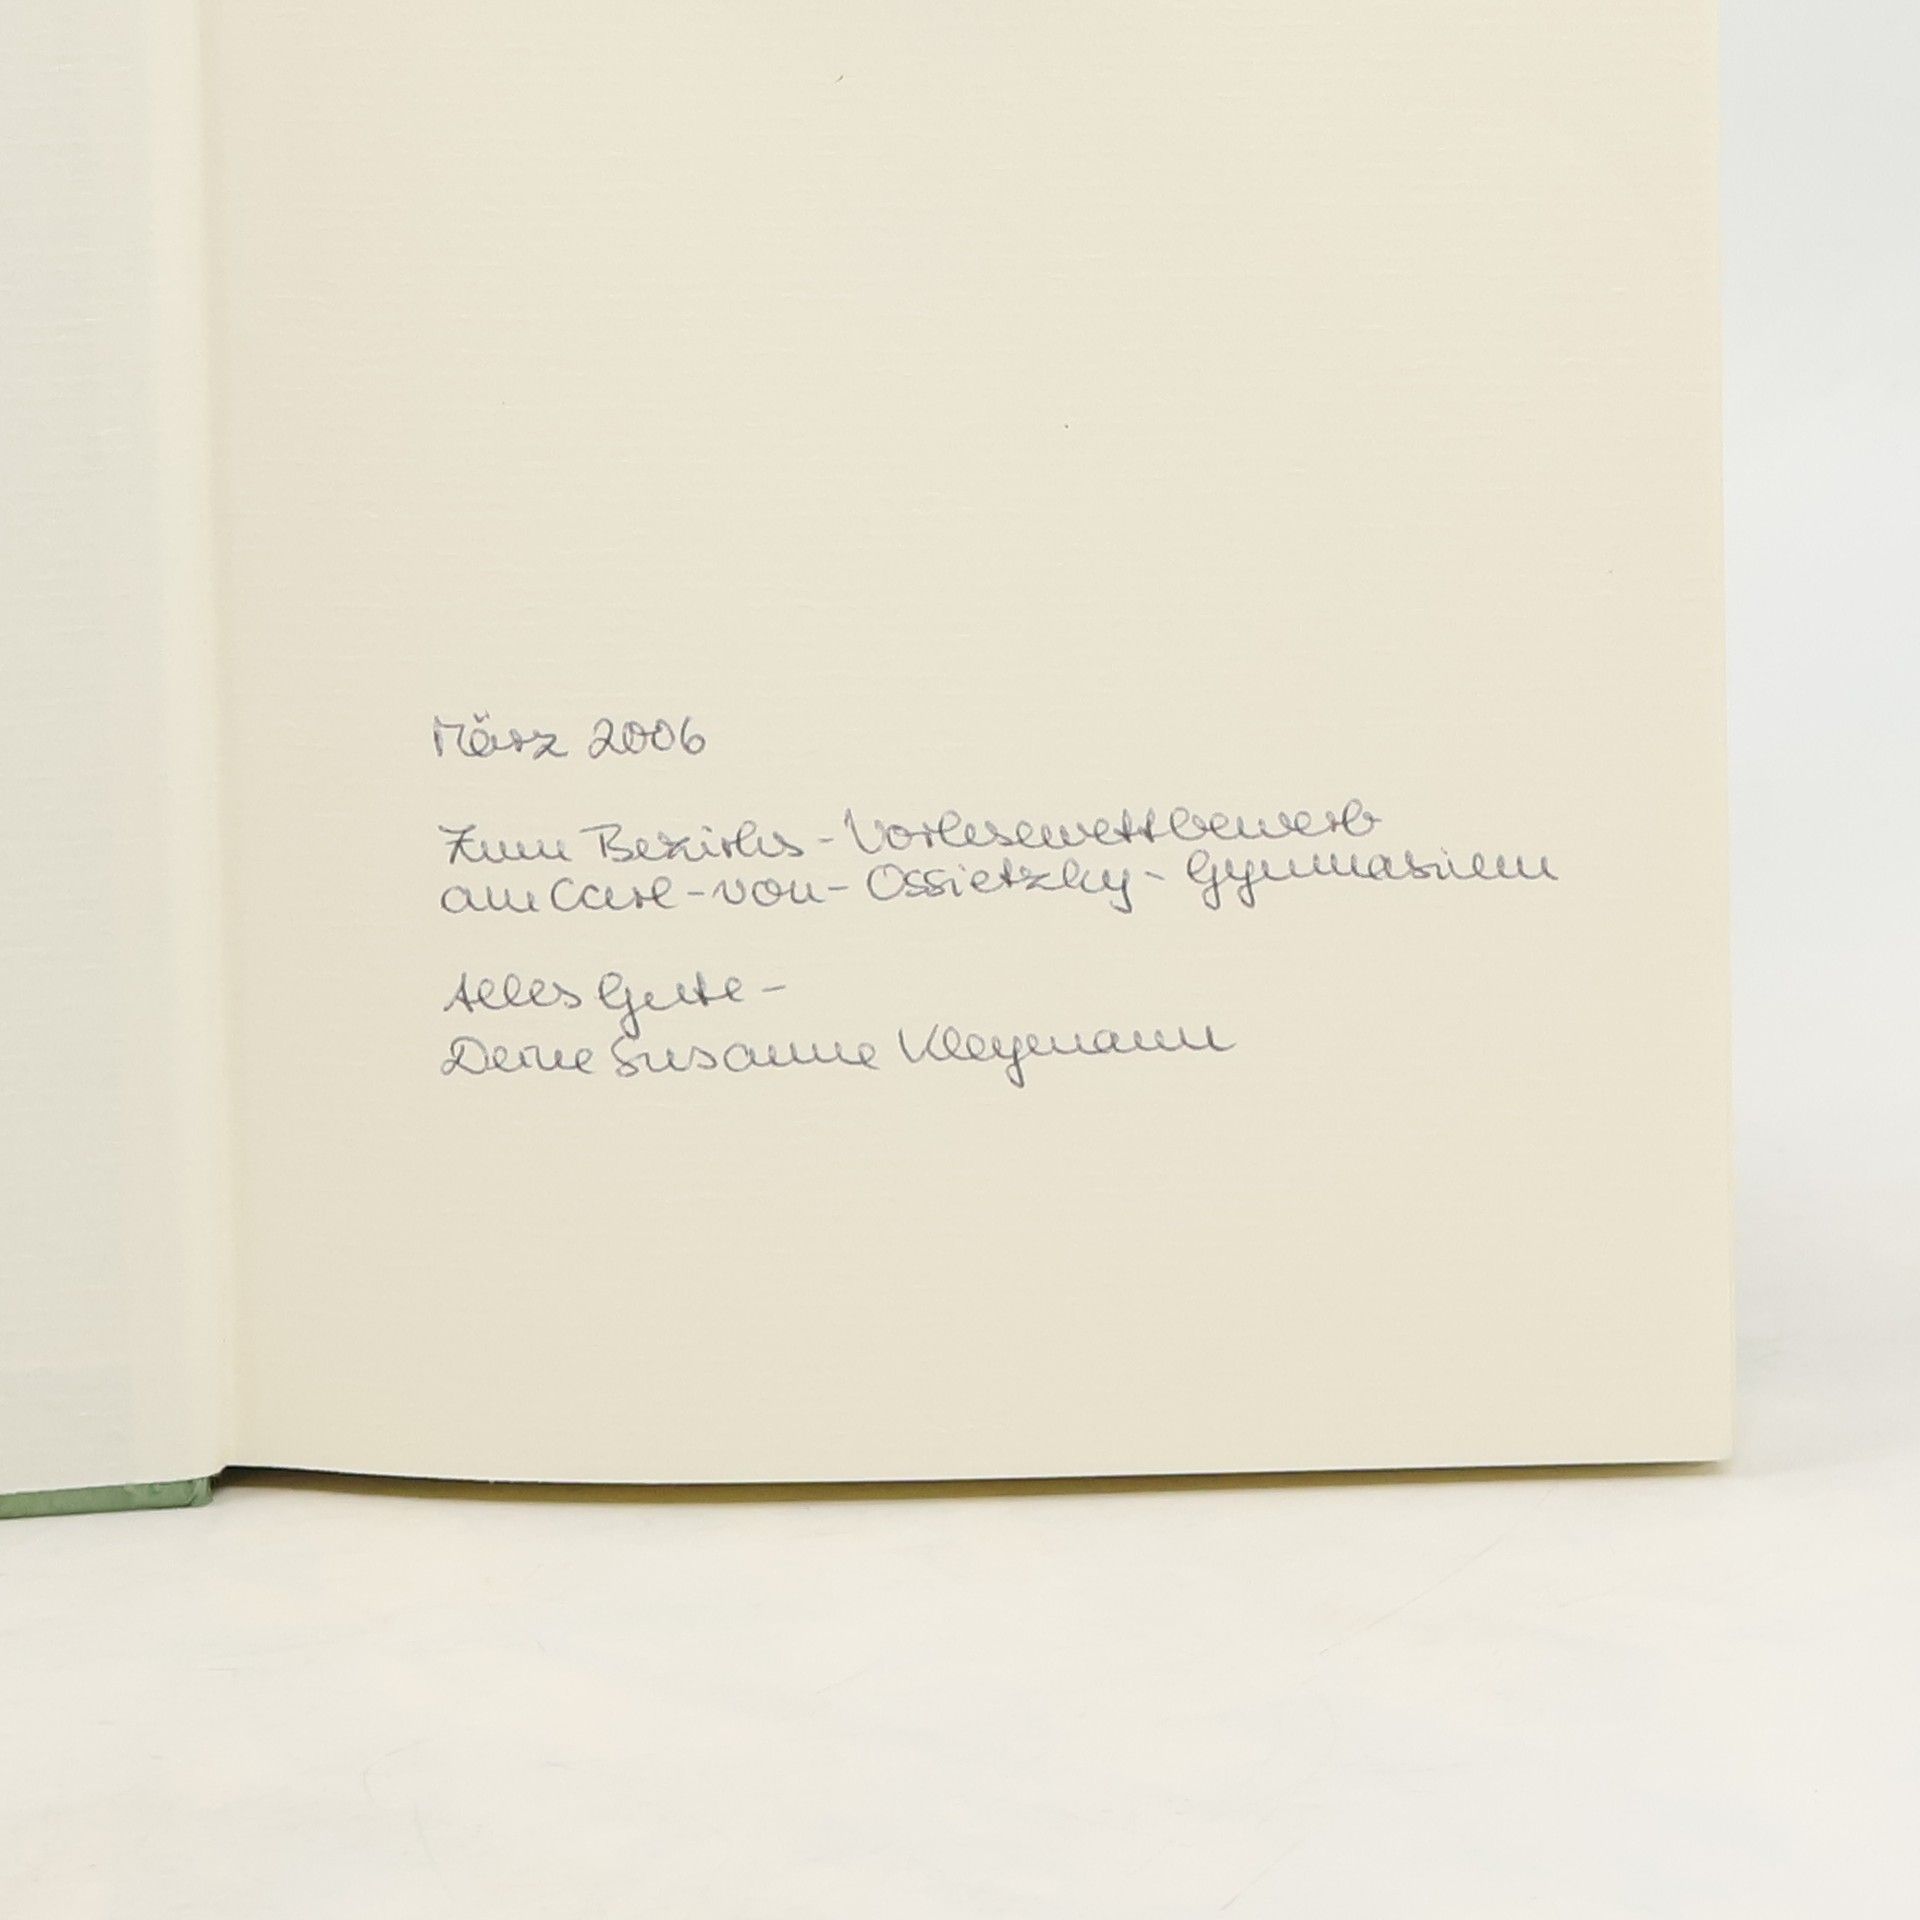 März 2006
Zum Bezirks-Vorlesewettbewerb
am Carl-von-Ossietzky-Gymnasium
Alles Gute -
Deine Susanne Kleymann